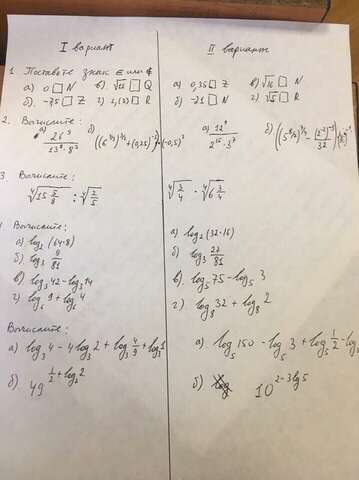 I вариант
1. Поставьте знак ∈ или ∉
а) 0 □ N в) √15 □ Q
б) -75 □ Z г) 1,(3) □ R
2. Вычислите:
а) 26⁹/(13⁹·8²) б)
3. Вычислите:
⁴√(15 5/8) : ⁴√(2/5)
Вычислите:
а) log₂ (64·8)
б) log₃ 9/81
в) log₃ 42 - log₃ 14
г) log₆ 9 + log₆ 4
Вычислите:
а) log₃ 4 - 4 log₃ 2 + log₃ 4/9 + log₃ 1
б)
II вариант
а) 0,35 □ Z в) √16 □ N
б) -21 □ N г) √5 □ R
а) б)
⁴√(3/4) · ⁴√(6 3/4)
а) log₂ (32·16)
б) log₃ 27/81
в) log₅ 75 - log₅ 3
г) log₈ 32 + log₈ 2
а) log₅ 150 - log₅ 3 + log₅ 1/2 - log₅
б) 10^(2-3lg5)